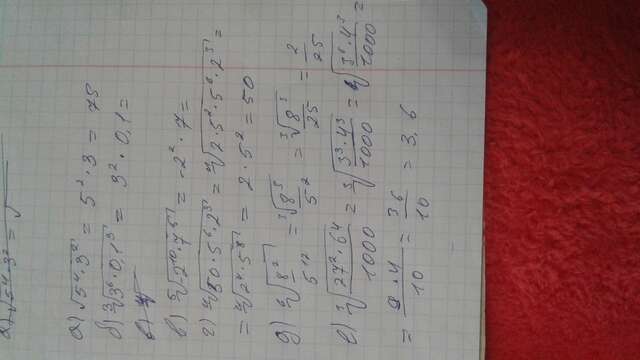 а) √5⁴·3² = √
а) √5⁴·3² = 5²·3 = 75
б) ³√3⁶·0,1³ = 3²·0,1 =
в) ⁵√-2¹⁰·7⁵ = -2²·7 =
г) ⁴√50·5⁶·2³ = ⁴√2·5²·5⁶·2³ =
= ⁴√2⁴·5⁸ = 2·5² = 50
д) ⁶√8²/5¹² = ³√8³/5² = ³√8³/25 = 2/25
е) ³√27²·64/1000 = ³√3³·4³/1000 = ³√3⁶·4³/1000 =
= 9·4/10 = 36/10 = 3,6